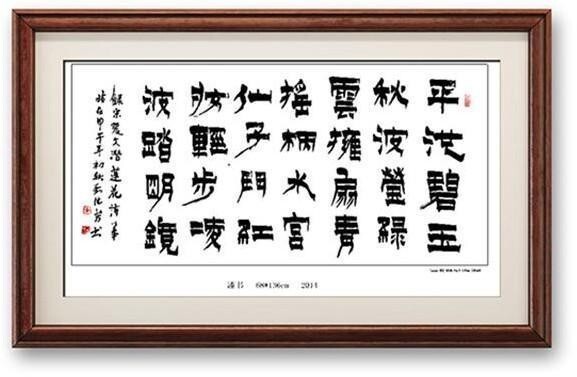 平池碧玉
秋波瑩綠
雲擁扇青
搖柄水宮
仙子鬥紅
妝輕步凌
波踏明鏡
錄宋張文潛蓮花詩
時在甲午年初秋 書
漆书 68*136cm 2014